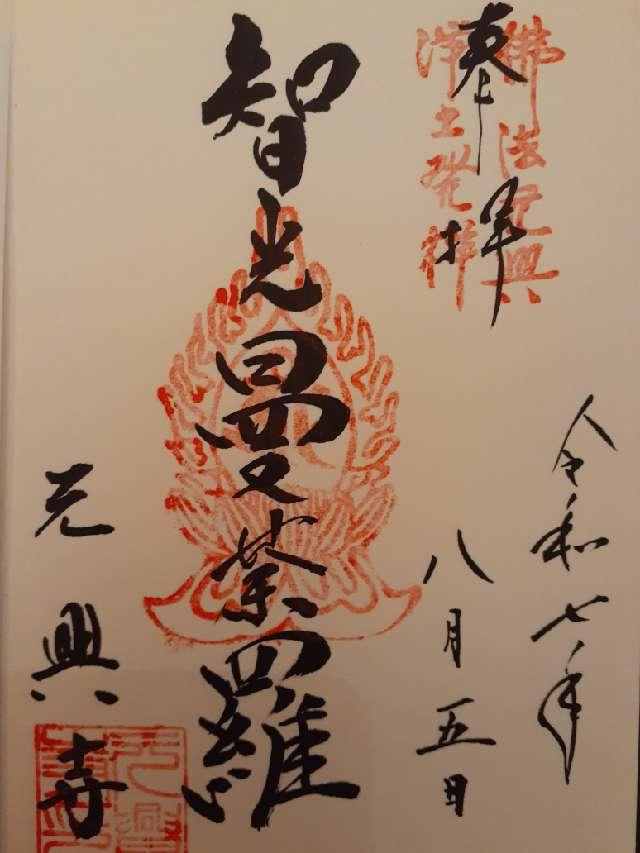 奉拝
佛法元興
浄土発祥
令和七年
八月五日
智光曼荼羅
元興寺